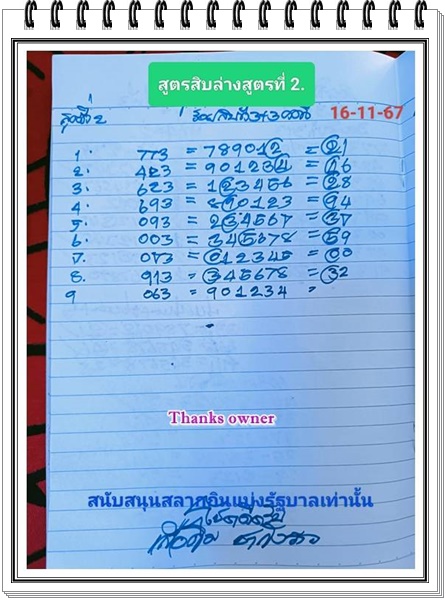 สูตรสิบล่างสูตรที่ 2.
สูตรที่ 2
16-11-67
1. 773 = 789012 = 21
2. 423 = 901234 = 16
3. 623 = 123456 = 28
4. 693 = 890123 = 94
5. 093 = 234567 = 37
6. 003 = 345678 = 59
7. 073 = 012345 = 00
8. 913 = 345678 = 32
9 063 = 901234 =
Thanks owner
สนับสนุนสลากกินแบ่งรัฐบาลเท่านั้น